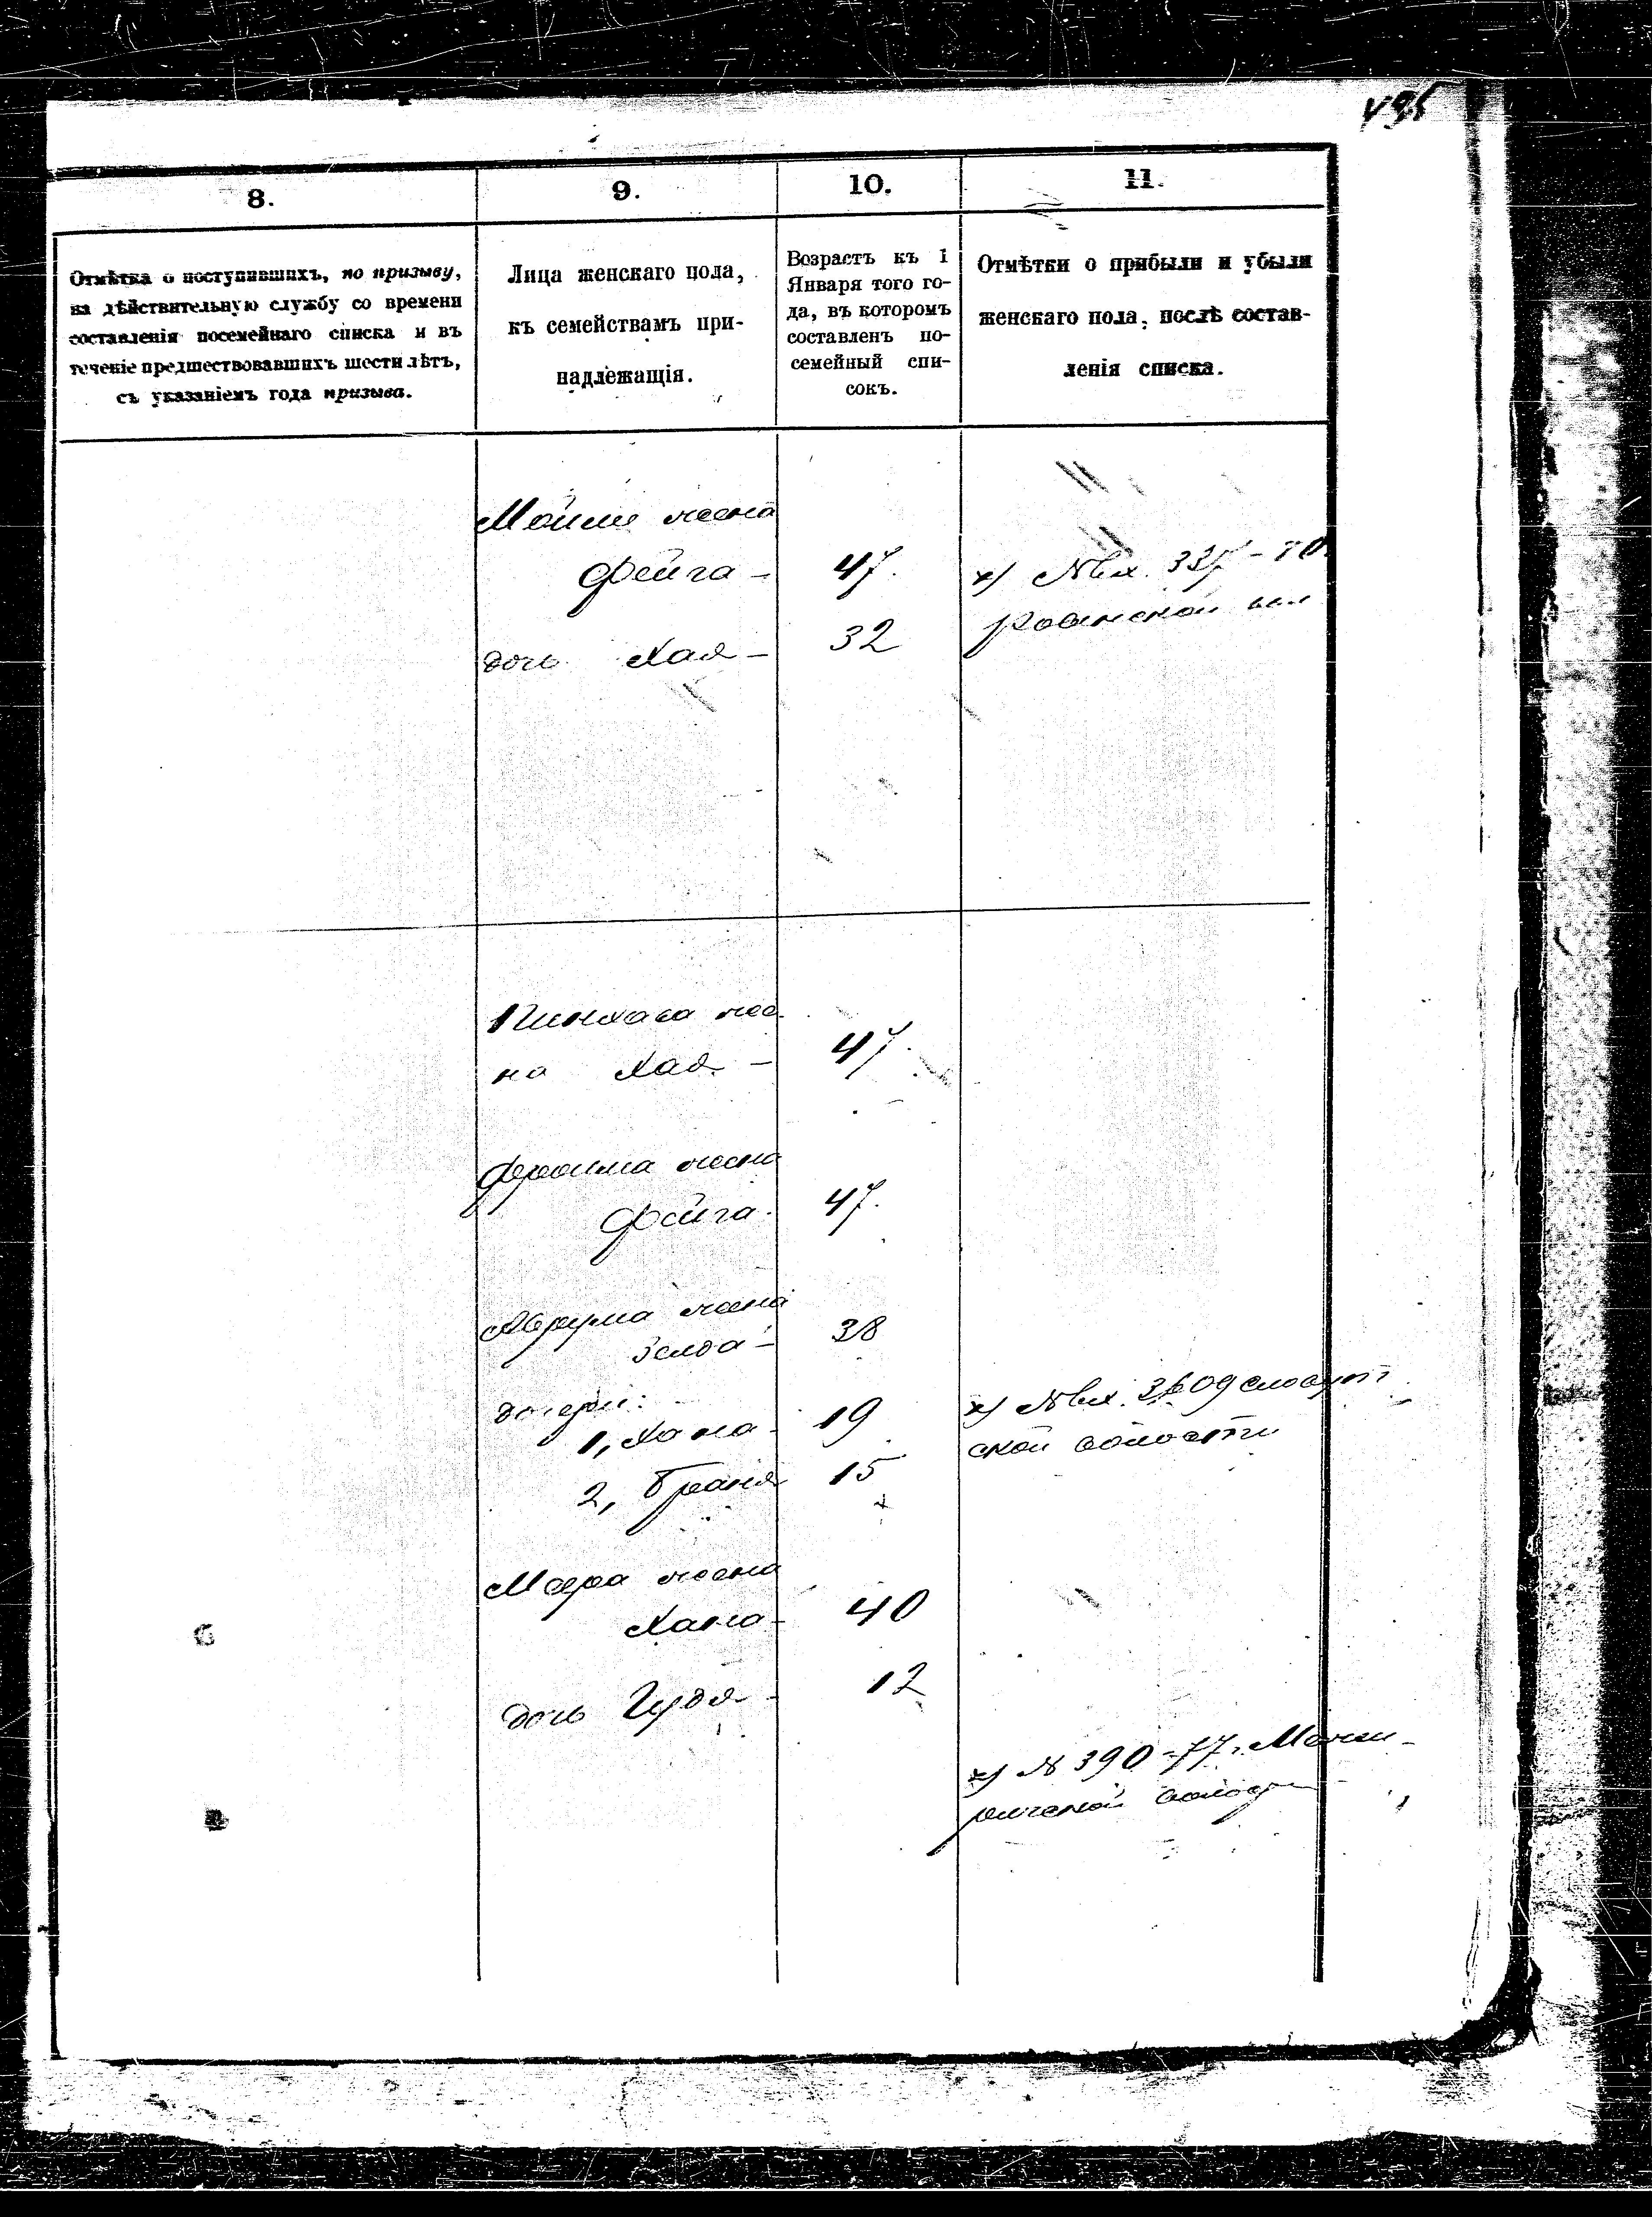 8.
9.
10.
11.
Отмѣтка о поступившихъ, по призыву,
на дѣйствительную службу со времени
составленія посемейнаго списка и въ
теченіе предшествовавшихъ шести лѣтъ,
съ указаніемъ года призыва.
Лица женскаго пола,
къ семействамъ при-
надлежащія.
Возрастъ къ 1
Января того го-
да, въ которомъ
составленъ по-
семейный спи-
сокъ.
Отмѣтки о прибыли и убыли
женскаго пола, послѣ состав-
ленія списка.
жена
Фейга - 47.
дочь Хая - 32
х) №вх.
Пинхаса же-
на Хая - 47.
Фроима жена
Фейга. 47.
Аврума жена
Зелда - 38
дочери:
1, Хана - 19
х) №вх.
ской волости
2, Браня 15
жена
Хана - 40
дочь Гудя - 12
х) № 390 - 77 г.